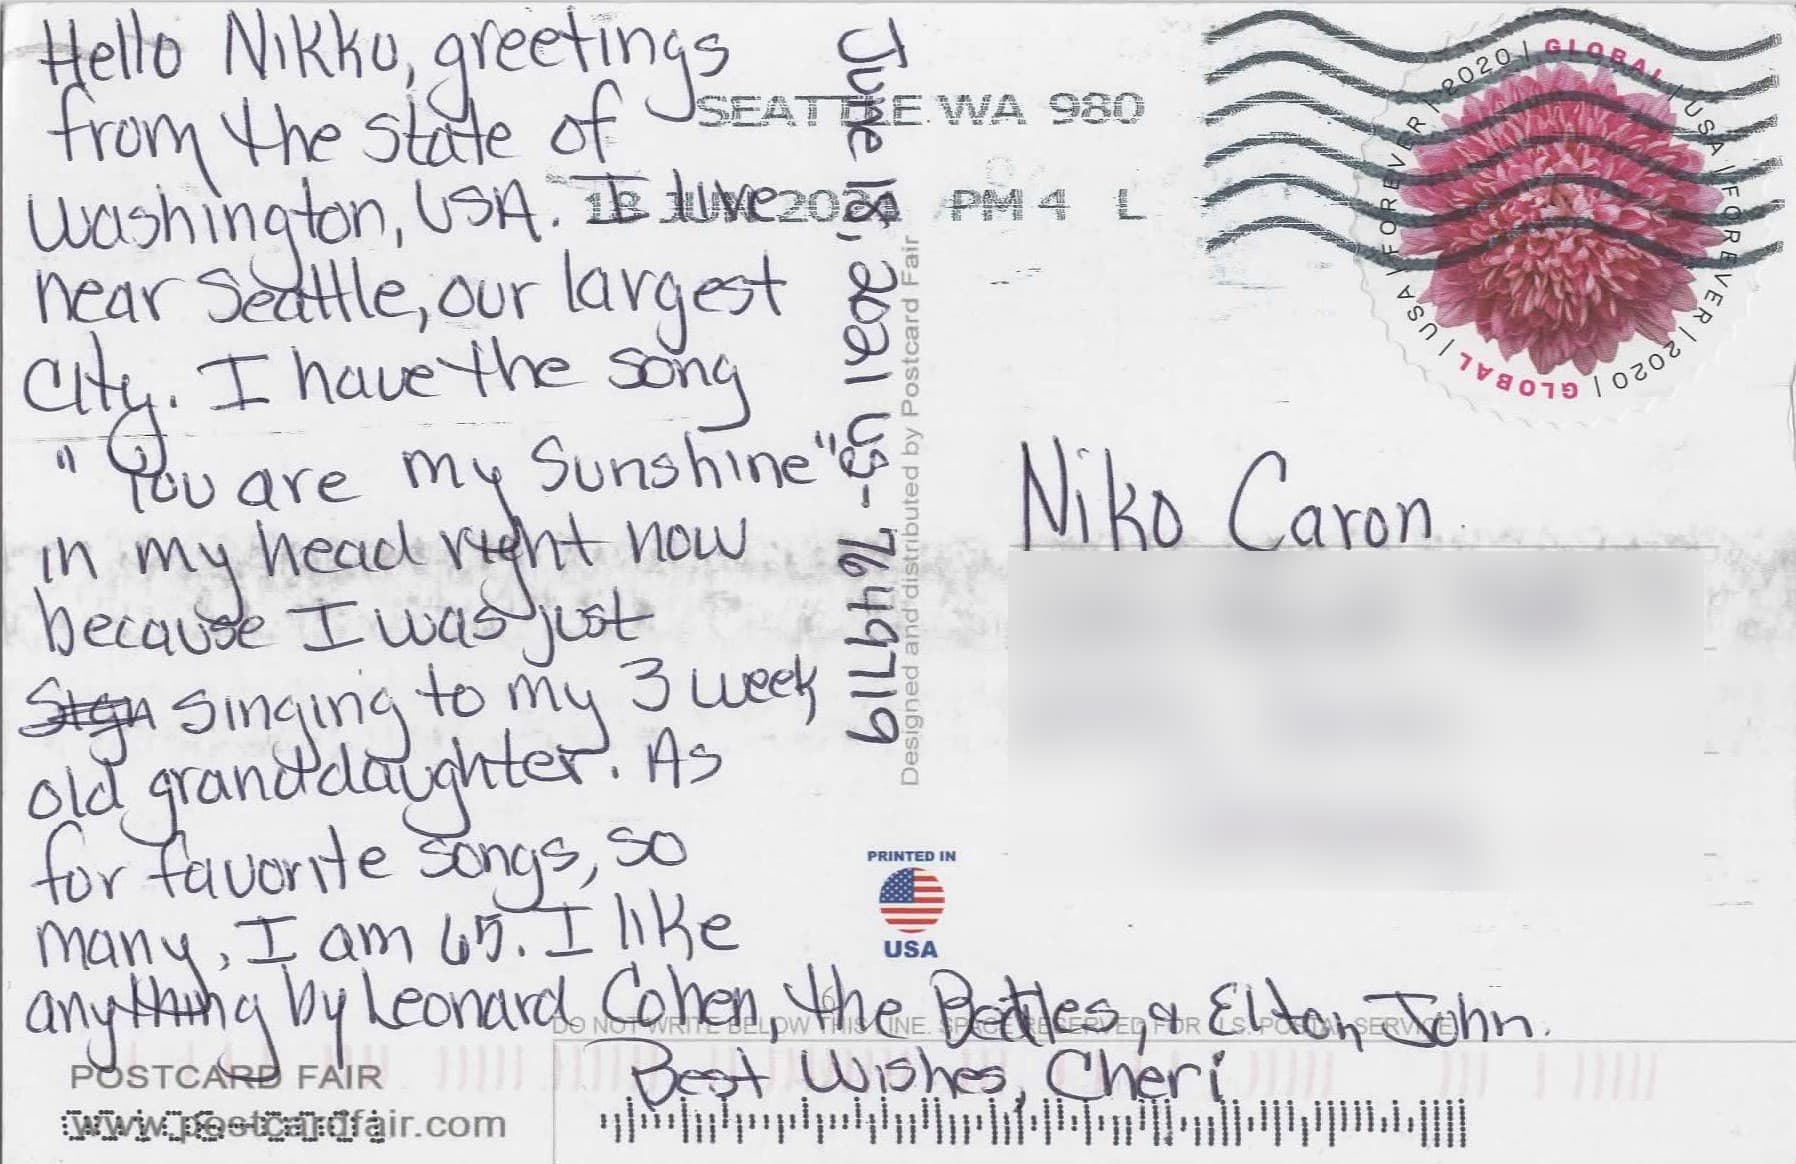 Hello Nikku, greetings
from the state of
Washington, USA. I live
near Seattle, our largest
City. I have the song
"You are my Sunshine"
in my head right now
because I was just
Sign singing to my 3 week
old granddaughter. As
for favorite songs, so
many, I am 65. I like
anything by Leonard Cohen, the Beatles, & Elton John.
Best Wishes, Cheri
June 18, 2021 US-7649719
Designed and distributed by Postcard Fair
SEATTLE WA 980
18 JUN 2021 PM 4 L
GLOBAL | USA | FOREVER | 2020 | GLOBAL | USA | FOREVER | 2020 |
Niko Caron
PRINTED IN
USA
DO NOT WRITE BELOW THIS LINE. SPACE RESERVED FOR U.S. POSTAL SERVICE
POSTCARD FAIR
www.postcardfair.com